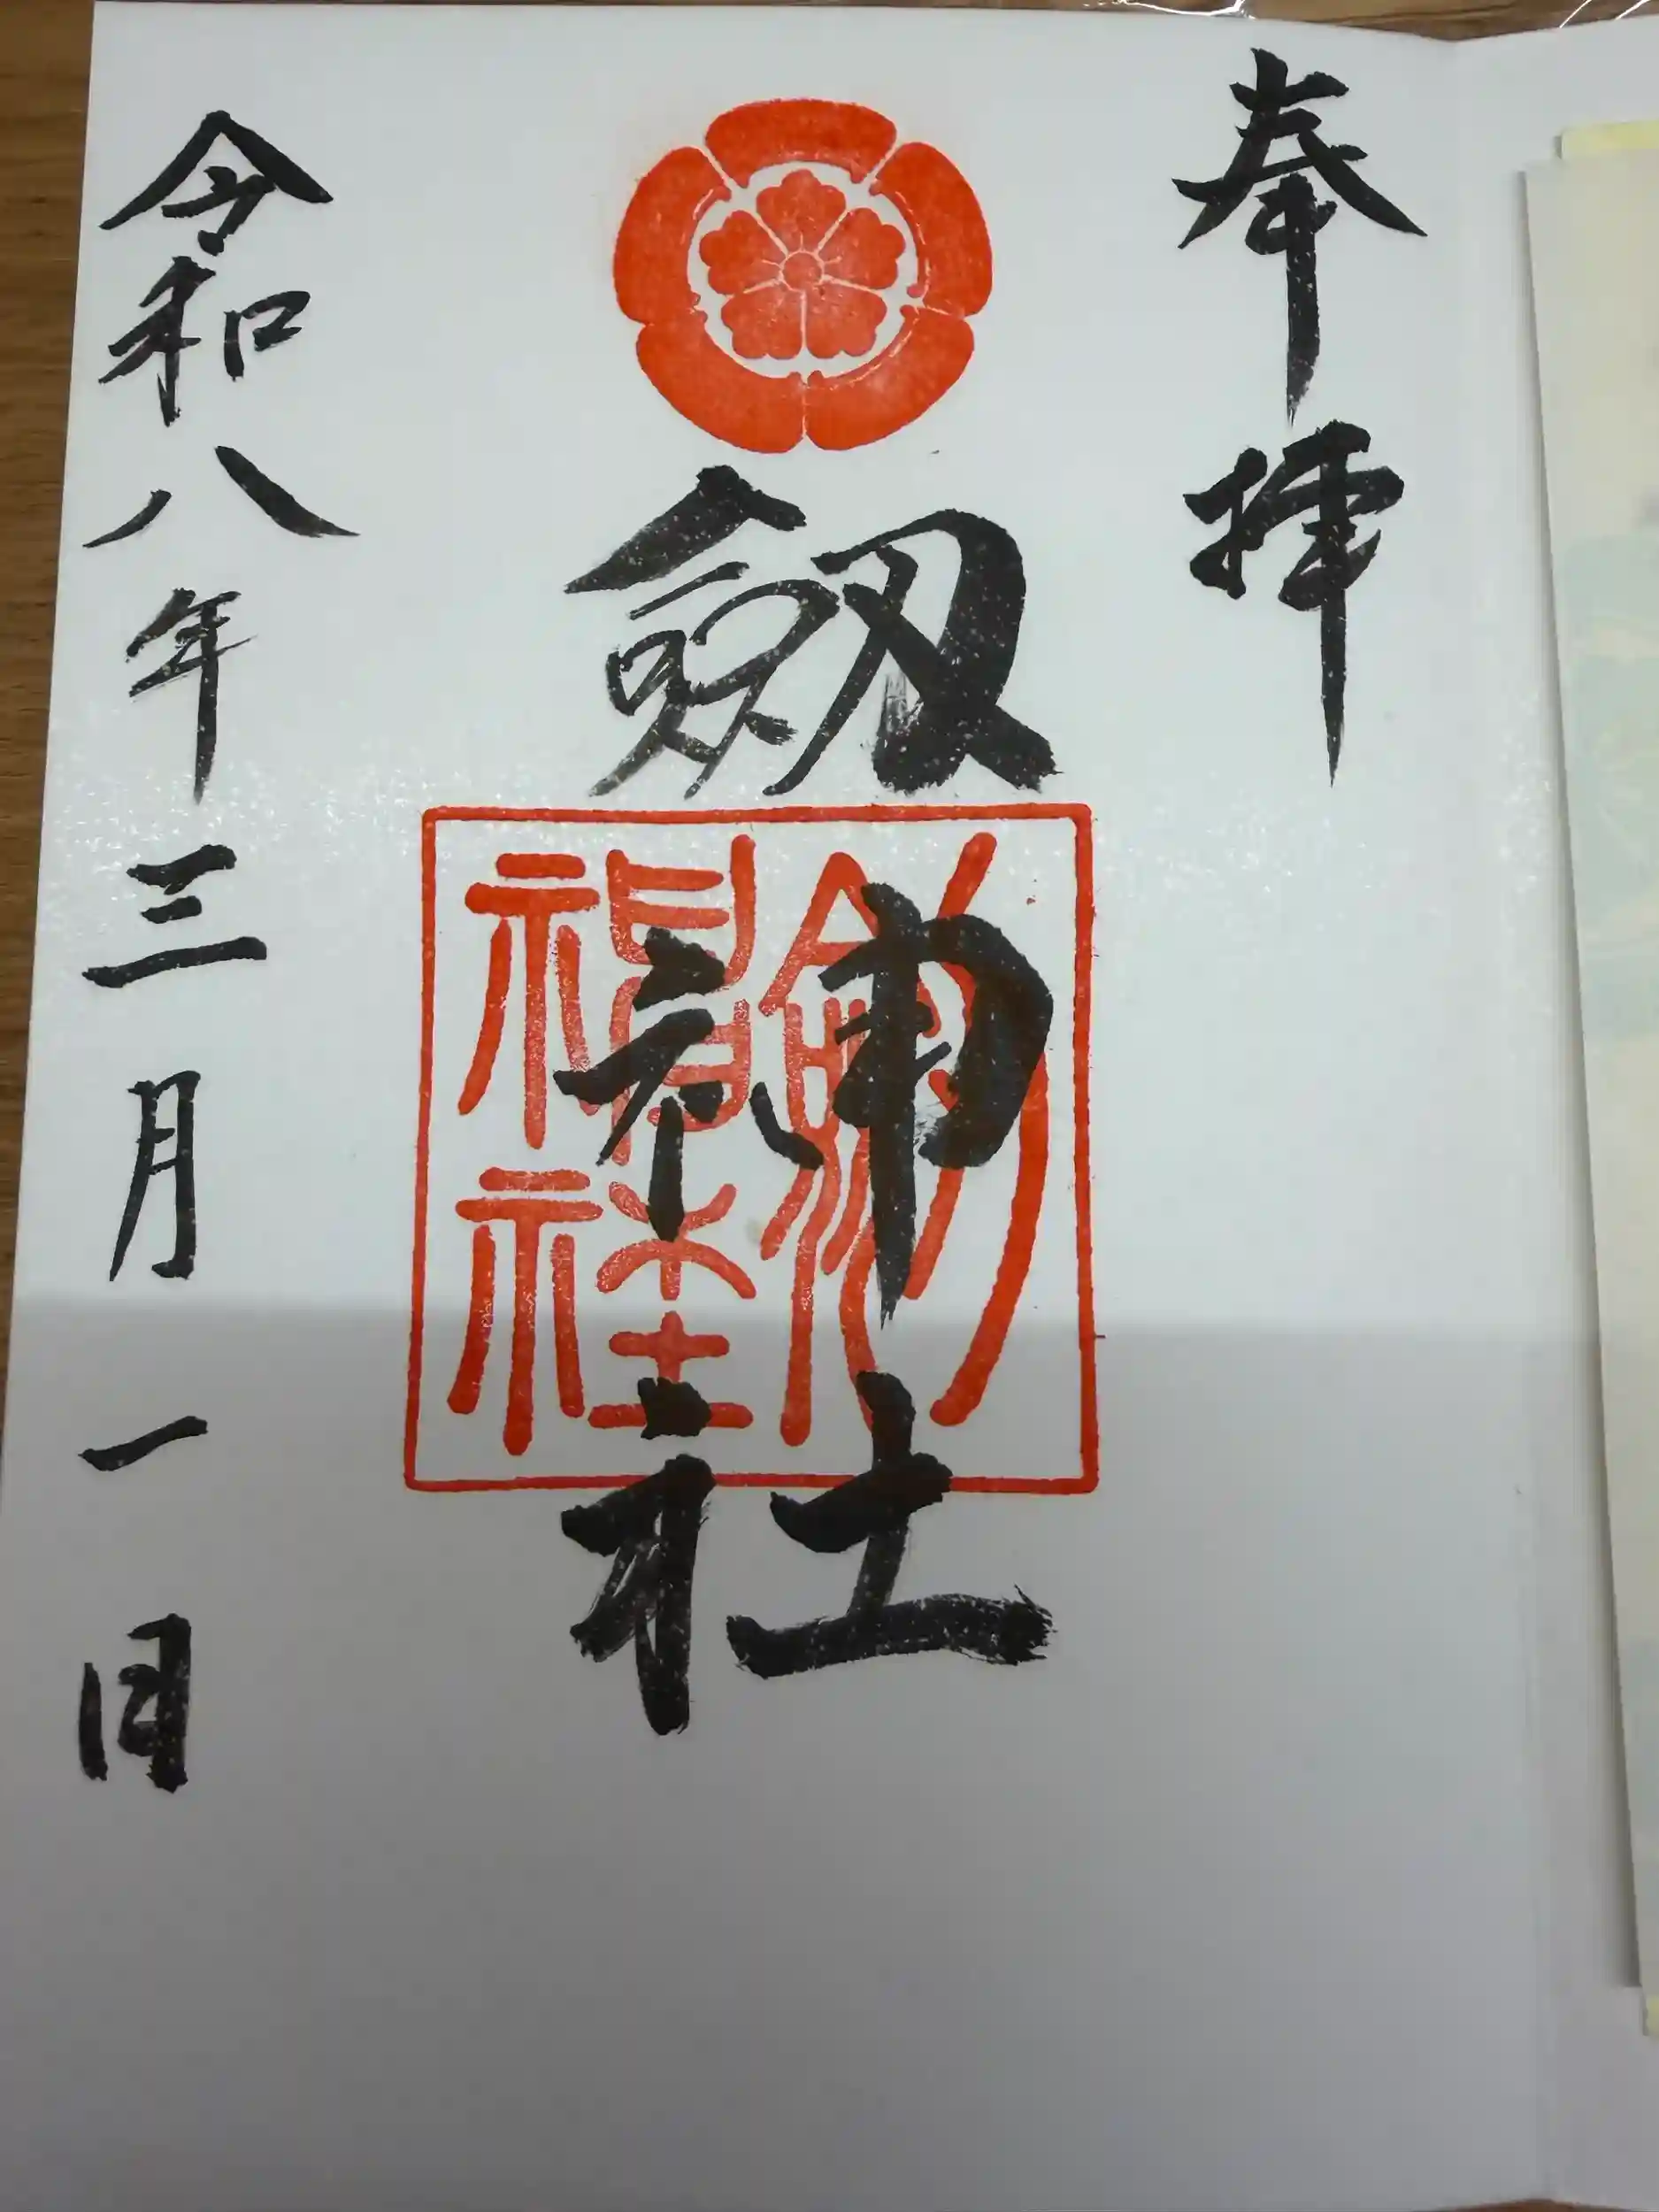 奉拝
劔神社
劔
神社
令和八年三月一日